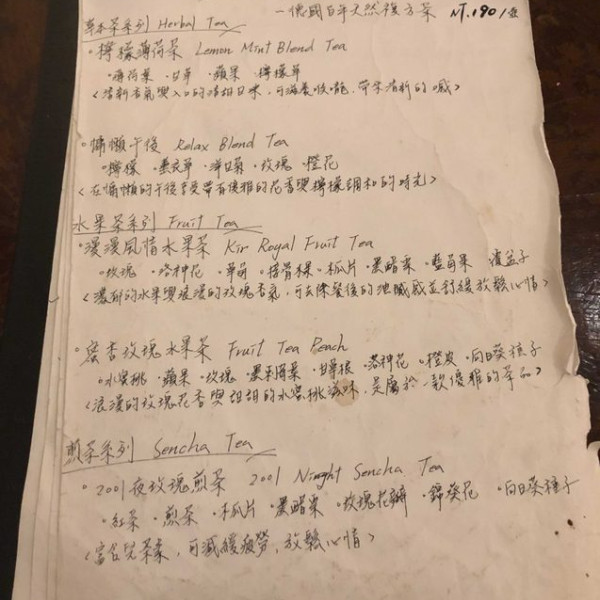 草本茶系列 Herbal Tea 一德國百年天然複方茶 NT.190/壺
。檸檬薄荷茶 Lemon Mint Blend Tea
・薄荷葉 ・甘草 ・蘋果 ・檸檬草
<清新香氣與入口的清甜甘味，可滋養喉嚨，帶來清新的口感>
。慵懶午後 Relax Blend Tea
・檸檬 ・薰衣草 ・洋甘菊 ・玫瑰 ・橙花
<在慵懶的午後享受帶有優雅的花香與檸檬調和的時光>
水果茶系列 Fruit Tea
。浪漫風情水果茶 Kir Royal Fruit Tea
・玫瑰 ・洛神花 ・草莓 ・接骨木果 ・木瓜片 ・黑醋栗 ・藍莓果 ・覆盆子
<濃郁的水果與浪漫的玫瑰香氣，可去除餐後的油膩感並舒緩放鬆心情>
。蜜香玫瑰水果茶 Fruit Tea Peach
・水蜜桃 ・蘋果 ・玫瑰 ・黑莓葉 ・甘草根 ・洛神花 ・橙皮 ・向日葵種子
<浪漫的玫瑰花香與甜甜的水蜜桃滋味，是屬於一款優雅的茶品>
煎茶系列 Sencha Tea
。2001夜玫瑰煎茶 2001 Ninght Sencha Tea
・紅茶 ・煎茶 ・木瓜片 ・黑醋栗 ・玫瑰花瓣 ・錦葵花 ・向日葵種子
<富含兒茶素，可減緩疲勞，放鬆心情>